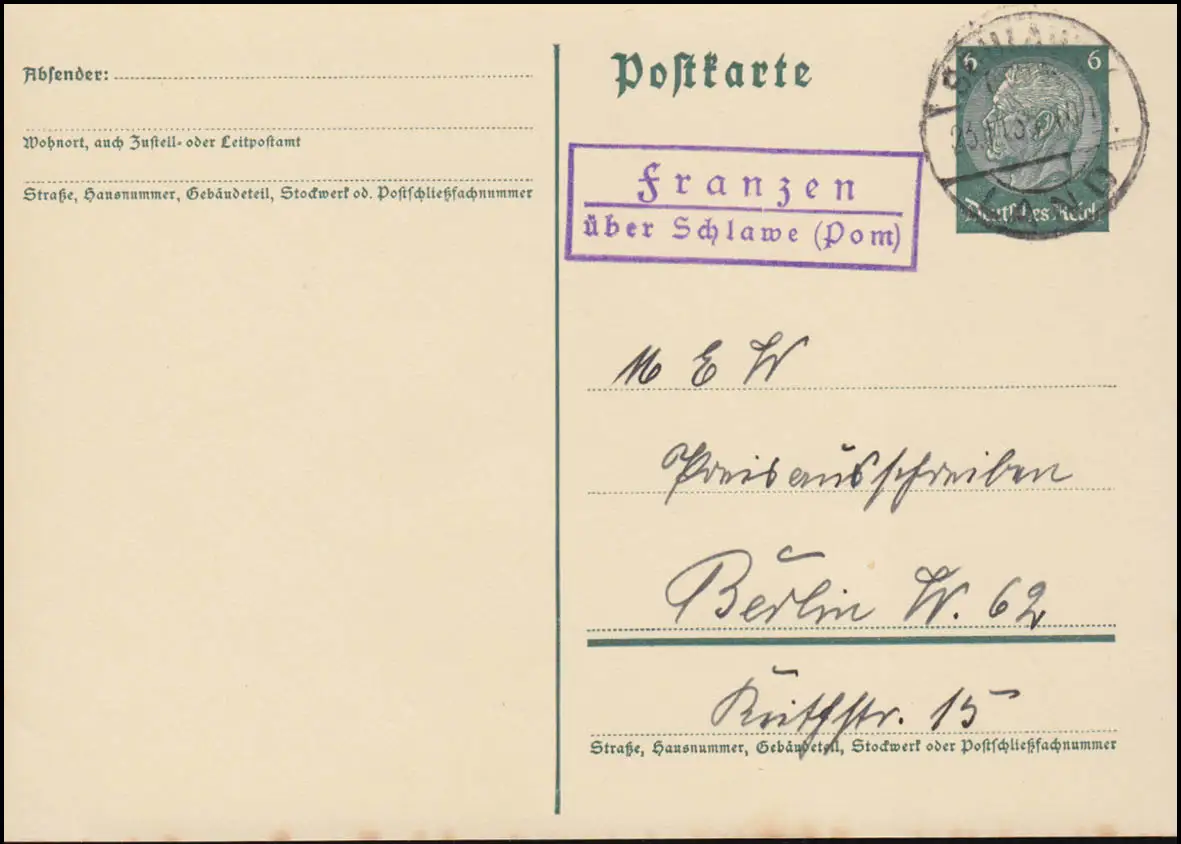 Absender:
Wohnort, auch Zustell- oder Leitpostamt
Straße, Hausnummer, Gebäudeteil, Stockwerk od. Postschließfachnummer
Postkarte
6 6
Deutsches Reich
LAND
Franzen
über Schlawe (Pom)
M E W
Preisausschreiben
Berlin W. 62
Keithstr. 15
Straße, Hausnummer, Gebäudeteil, Stockwerk oder Postschließfachnummer